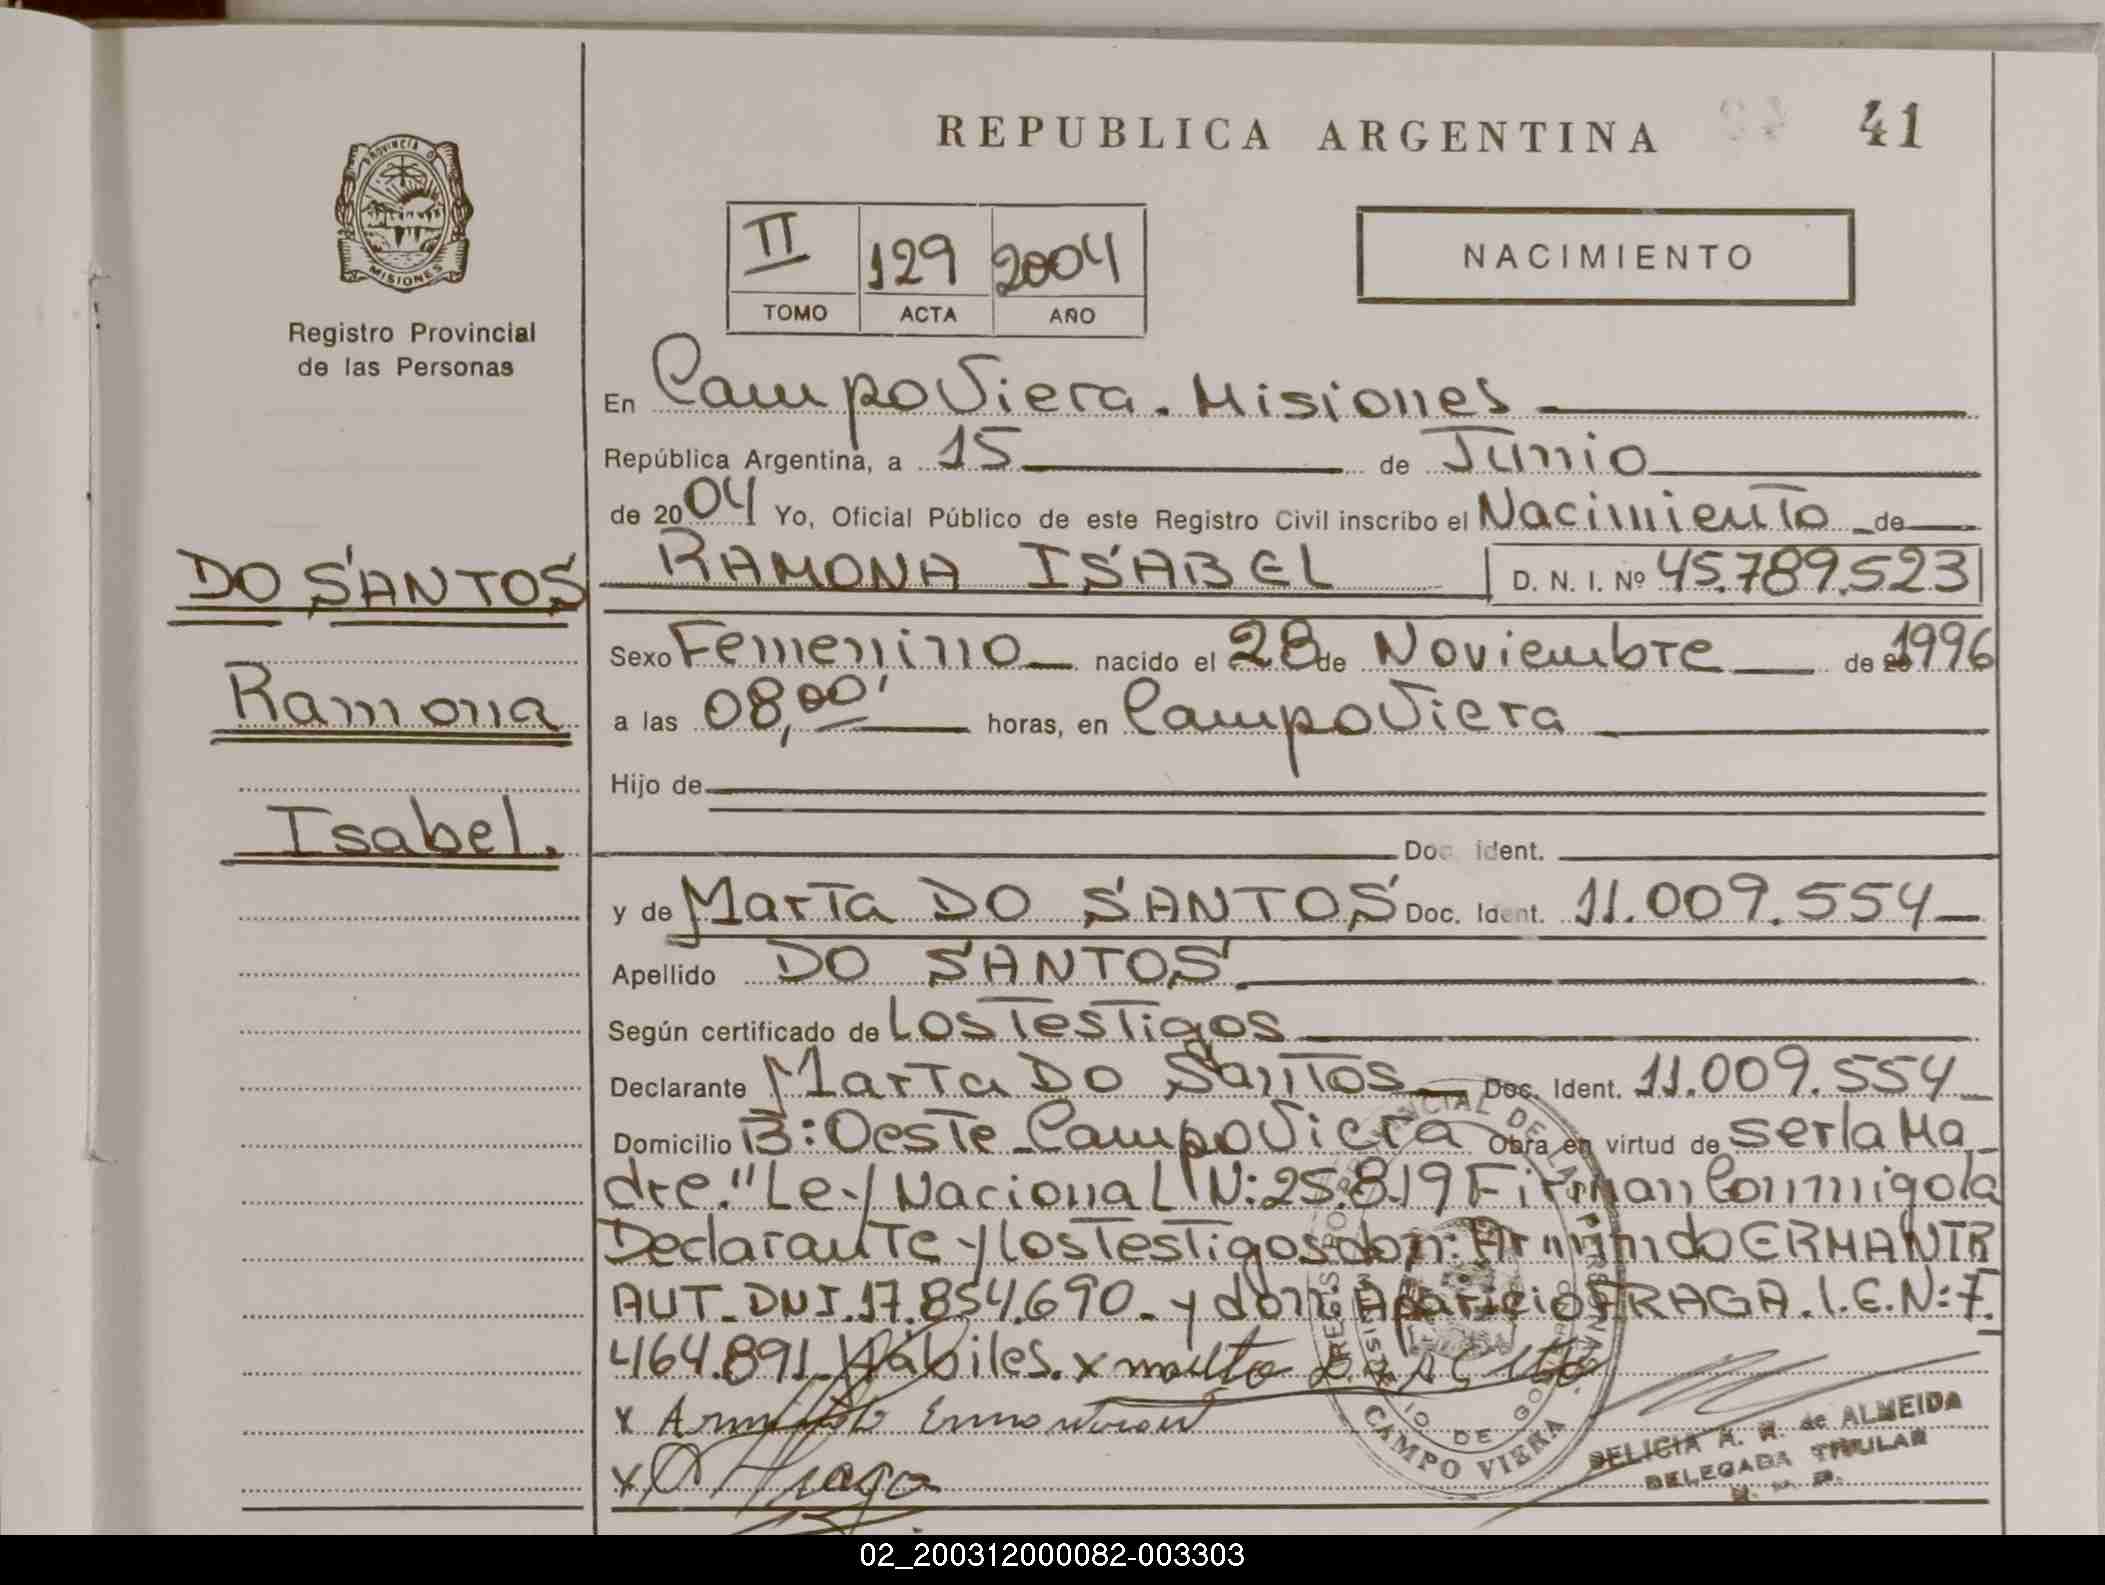 REPUBLICA ARGENTINA
41
PROVINCIA D
MISIONES
Registro Provincial
de las Personas
II 129 2004
TOMO ACTA AÑO
NACIMIENTO
En Campo Viera. Misiones
República Argentina, a 15 de Junio
de 2004 Yo, Oficial Público de este Registro Civil inscribo el Nacimiento de
DO SANTOS
Ramona
Isabel.
RAMONA ISABEL D. N. I. Nº 45.789.523
Sexo Femenino nacido el 28 de Noviembre de 1996
a las 08,00' horas, en Campo Viera
Hijo de
Doc. ident.
y de Marta DO SANTOS Doc. Ident. 11.009.554
Apellido DO SANTOS
Según certificado de Los Testigos
Declarante Marta Do Santos Doc. Ident. 11.009.554
Domicilio B: Oeste - Campo Viera Obra en virtud de ser la Ma
dre." Ley Nacional N: 25.819 Firman Conmigo la
Declarante y los Testigos don: Armindo ERMANTR
AUT - DNI. 17.854.690 - y don: Aparicio FRAGA. L.E.N: 7.
464.891 Hábiles. x
x
x
CAMPO VIERA
DELICIA A. R. de ALMEIDA
DELEGADA TITULAR
02_200312000082-003303